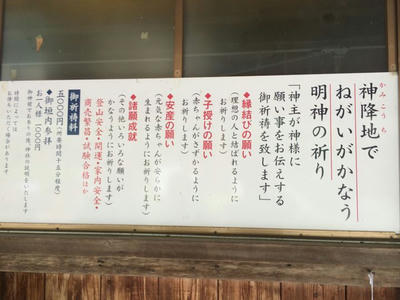 かみこうち
神降地で
ねがいがかなう
明神の祈り
「神主が神様に
願い事をお伝えする
御祈祷を致します」
◆縁結びの願い
(理想の人と結ばれるように
お祈りします)
◆子授けの願い
(赤ちゃんがさずかるように
お祈りします)
◆安産の願い
(元気な赤ちゃんが安らかに
生まれるようにお祈りします)
◆諸願成就
(その他いろいろな願いが
かなうようにお祈りします)
登山安全・開運・家内安全・
商売繁昌・試験合格ほか
御祈祷料
五〇〇〇円(所要時間十五分程度)
◆御垣内参拝
お一人様一〇〇〇円
時間によっては
お待ちいただく場合があります